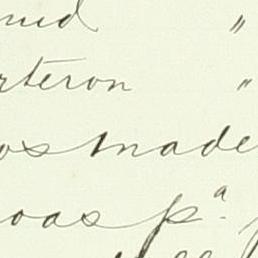 nid "
rteron "
os made
oas pª.